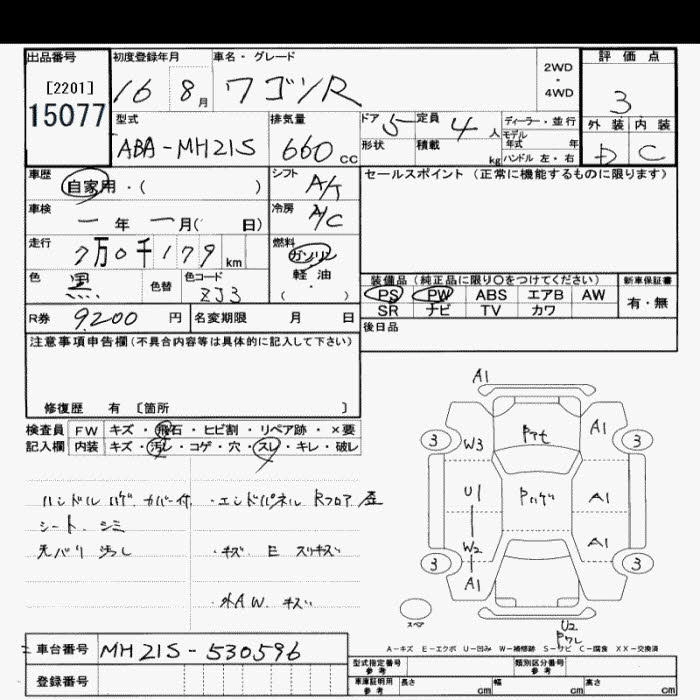 出品番号 初度登録年月 車名・グレード 評価点
[2201]
15077
16 8月 ワゴンR 2WD・4WD 3
型式 排気量 ドア 定員 ディーラー・並行 外装 内装
ABA-MH21S 660cc 5 4人 モデル年式 年 D C
形状 積載 kg ハンドル 左・右
車歴 自家用・( ) シフト A/T セールスポイント(正常に機能するものに限ります)
車検 一年一月( 日) 冷房 A/C
走行 7万0千179km 燃料 ガソリン
軽油
( ・ )
色 黒 色替 色コード ZJ3
装備品(純正品に限り〇をつけてください) 新車保証書
PS PW ABS エアB AW 有・無
SR ナビ TV カワ
R券 9200円 名変期限 月 日 後日品
注意事項申告欄(不具合内容等は具体的に記入して下さい)
修復歴 有 〔箇所 〕
検査員 FW キズ・飛石・ヒビ割・リペア跡・×要
記入欄 内装 キズ・汚レ・コゲ・穴・スレ・キレ・破レ
ハンドル ハゲ. カバー付 ・エンドパネル Rフロア 歪
シート. シミ
天バリ 汚し ・キズ E スリキズ
・外AW. キズ
A1
3 W3 A1 3
U1 Pハゲ A1
W2 A1
3 A1 3
スペア U2
A-キズ E-エクボ U-凹み W-補修跡 S-サビ C-腐食 XX-交換済
車台番号 MH21S-530596
登録番号
型式指定番号 参考 類別区分番号 参考
車庫証明用 参考 長さ cm 幅 cm 高さ cm